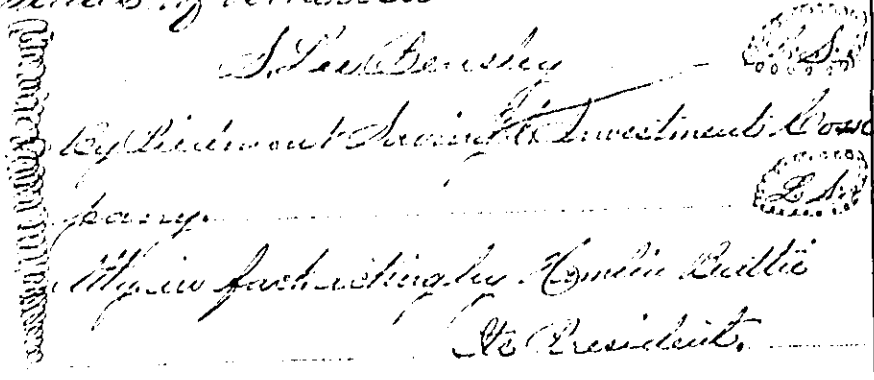 S. Lee Bensley (L. S.)
By Piedmont Saving & Investment Com
pany. (L. S.)
Atty in fact acting by Hamlin Beattie
Its President.